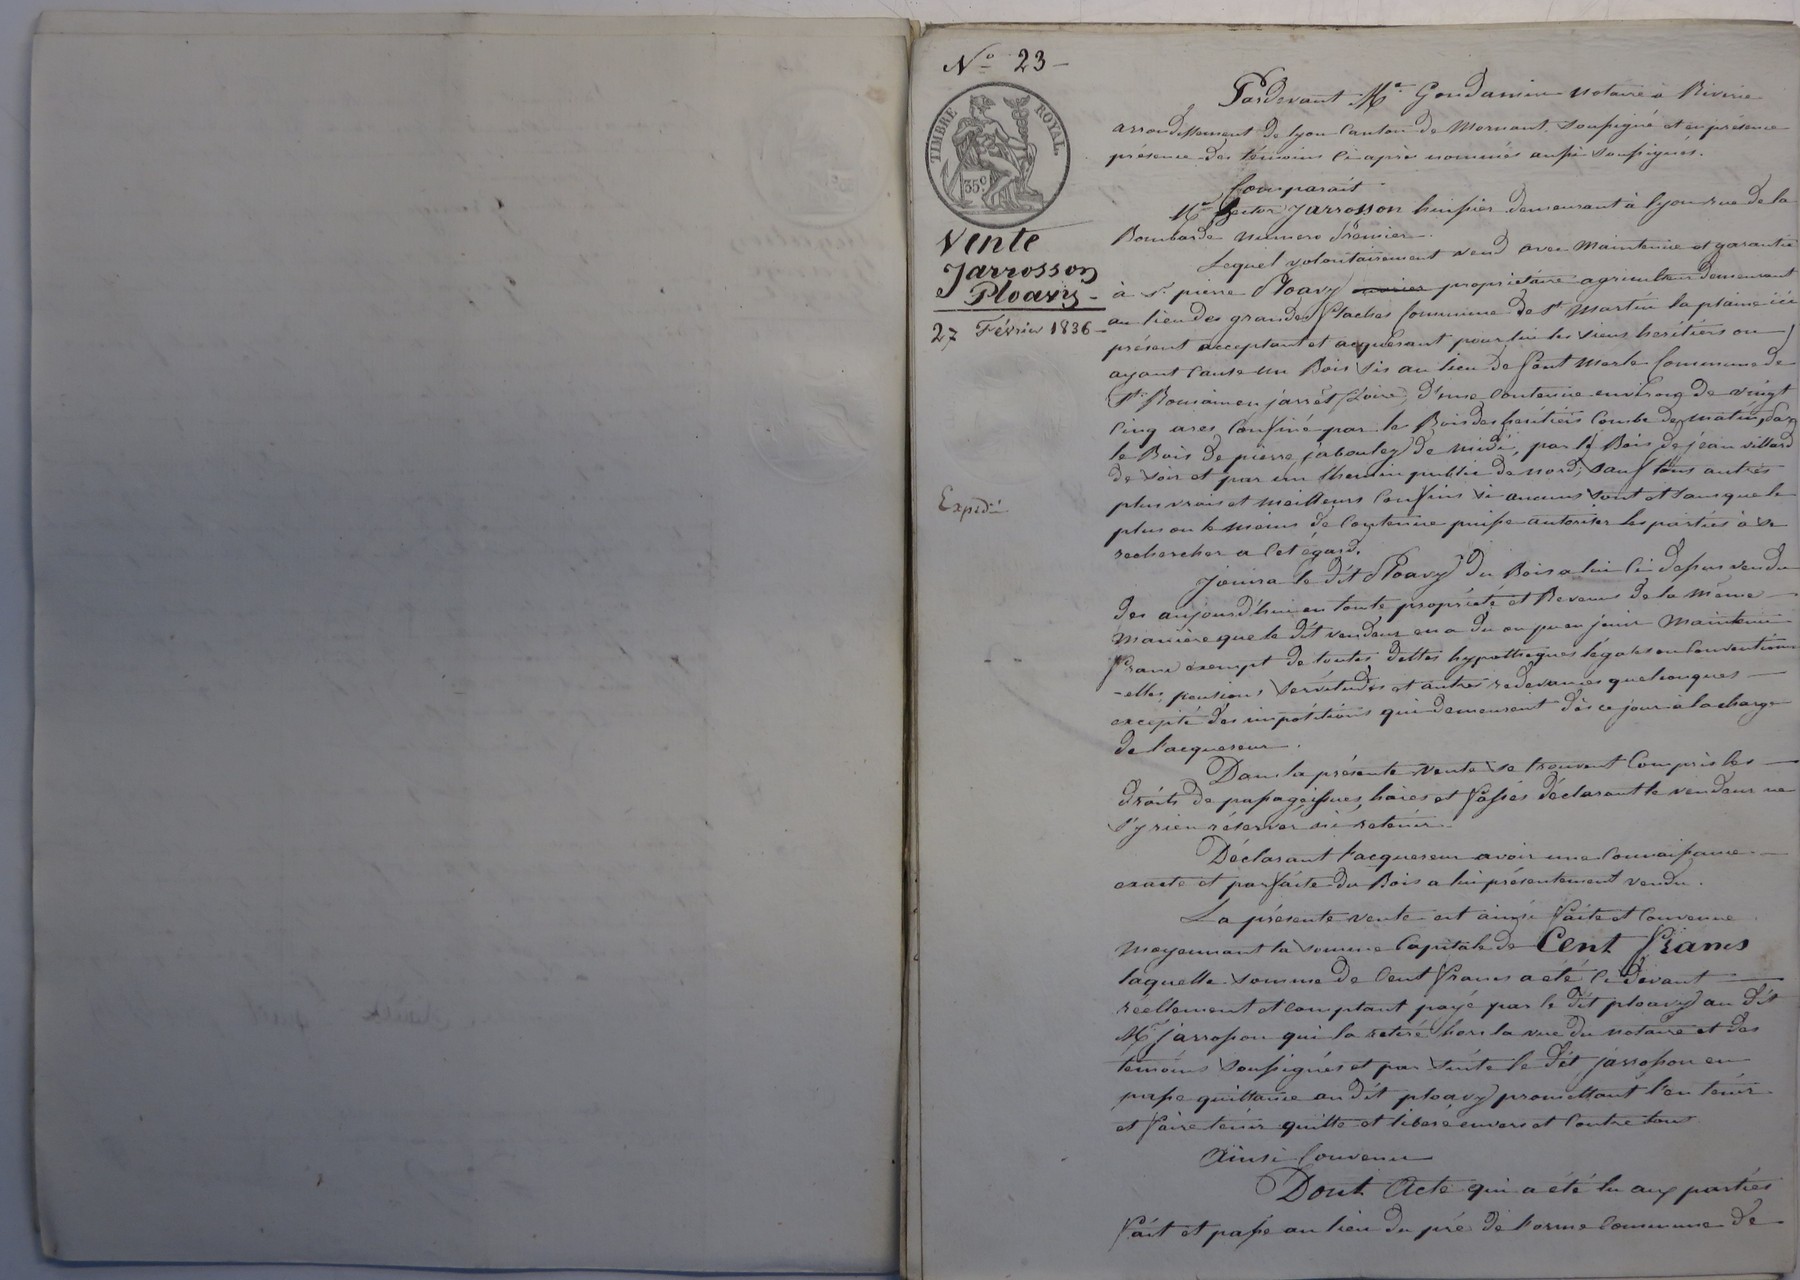 N° 23
TIMBRE ROYAL.
35c.
Vente
Jarrosson
Ploavy
27 Février 1836
Expédié
Pardevant Me Goudamin notaire à Riverie
arrondissement de Lyon Canton de Mornant soussigné et en présence
présence des témoins ci après nommés aussi soussignés.
Comparait
Mr Jarrosson huissier demeurant à Lyon rue de la
Bombarde numero premier.
Lequel volontairement vend avec maintenue et garantie
à Sr pierre Ploavy propriétaire agriculteur demeurant
au lieu des grandes flaches Commune de St Martin la plaine ici
présent acceptant et acquérant pour lui les siens heritiers ou
ayant cause un Bois sis au lieu de font merle Commune de
St Romain en jarrêt (Loire) d'une Contenue environ de vingt
Cinq ares Confiné par le Bois des heritiers Combe de matin, par
le Bois de pierre jabouley de midi, par le Bois de jean villard
de soir et par un Chemin public de nord, sauf tous autres
plus vrais et meilleurs Confins si aucuns sont et sans que le
plus ou le moins de Contenue puisse autoriser les parties à se
rechercher a Cet égard.
Jouira le dit Ploavy du Bois a lui Ci dessus vendu
des aujourd'hui en toute propriété et Revenus de la même
manière que le dit vendeur en a du ou pu en jouir maintenu
franc exempt de toutes dettes hypothèques légales ou Convention
-elles, pensions servitudes et autres redevances quelconques
excepté des impositions qui demeurent dès ce jour à la charge
de l'acquereur.
Dans la présente vente se trouvent Compris les
droits de passage, issues, haies et fossés déclarant le vendeur ne
s'y rien réserver ni retenir.
Déclarant l'acquereur avoir une Connaissance
exacte et parfaite du Bois a lui présentement vendu.
La présente vente est ainsi faite et Convenue
moyennant la somme Capitale de Cent francs
laquelle somme de Cent francs a été Ci devant
réellement et comptant payé par le dit ploavy au dit
Mr jarrosson qui la retiré hors la vue du notaire et des
témoins soussignés et par suite le dit jarrosson en
passe quittance au dit ploavy promettant l'en tenir
et faire tenir quitte et libéré envers et Contre tous
Ainsi Convenu
Dont Acte qui a été lu aux parties
Fait et passé au lieu du pré de l'orme Commune de